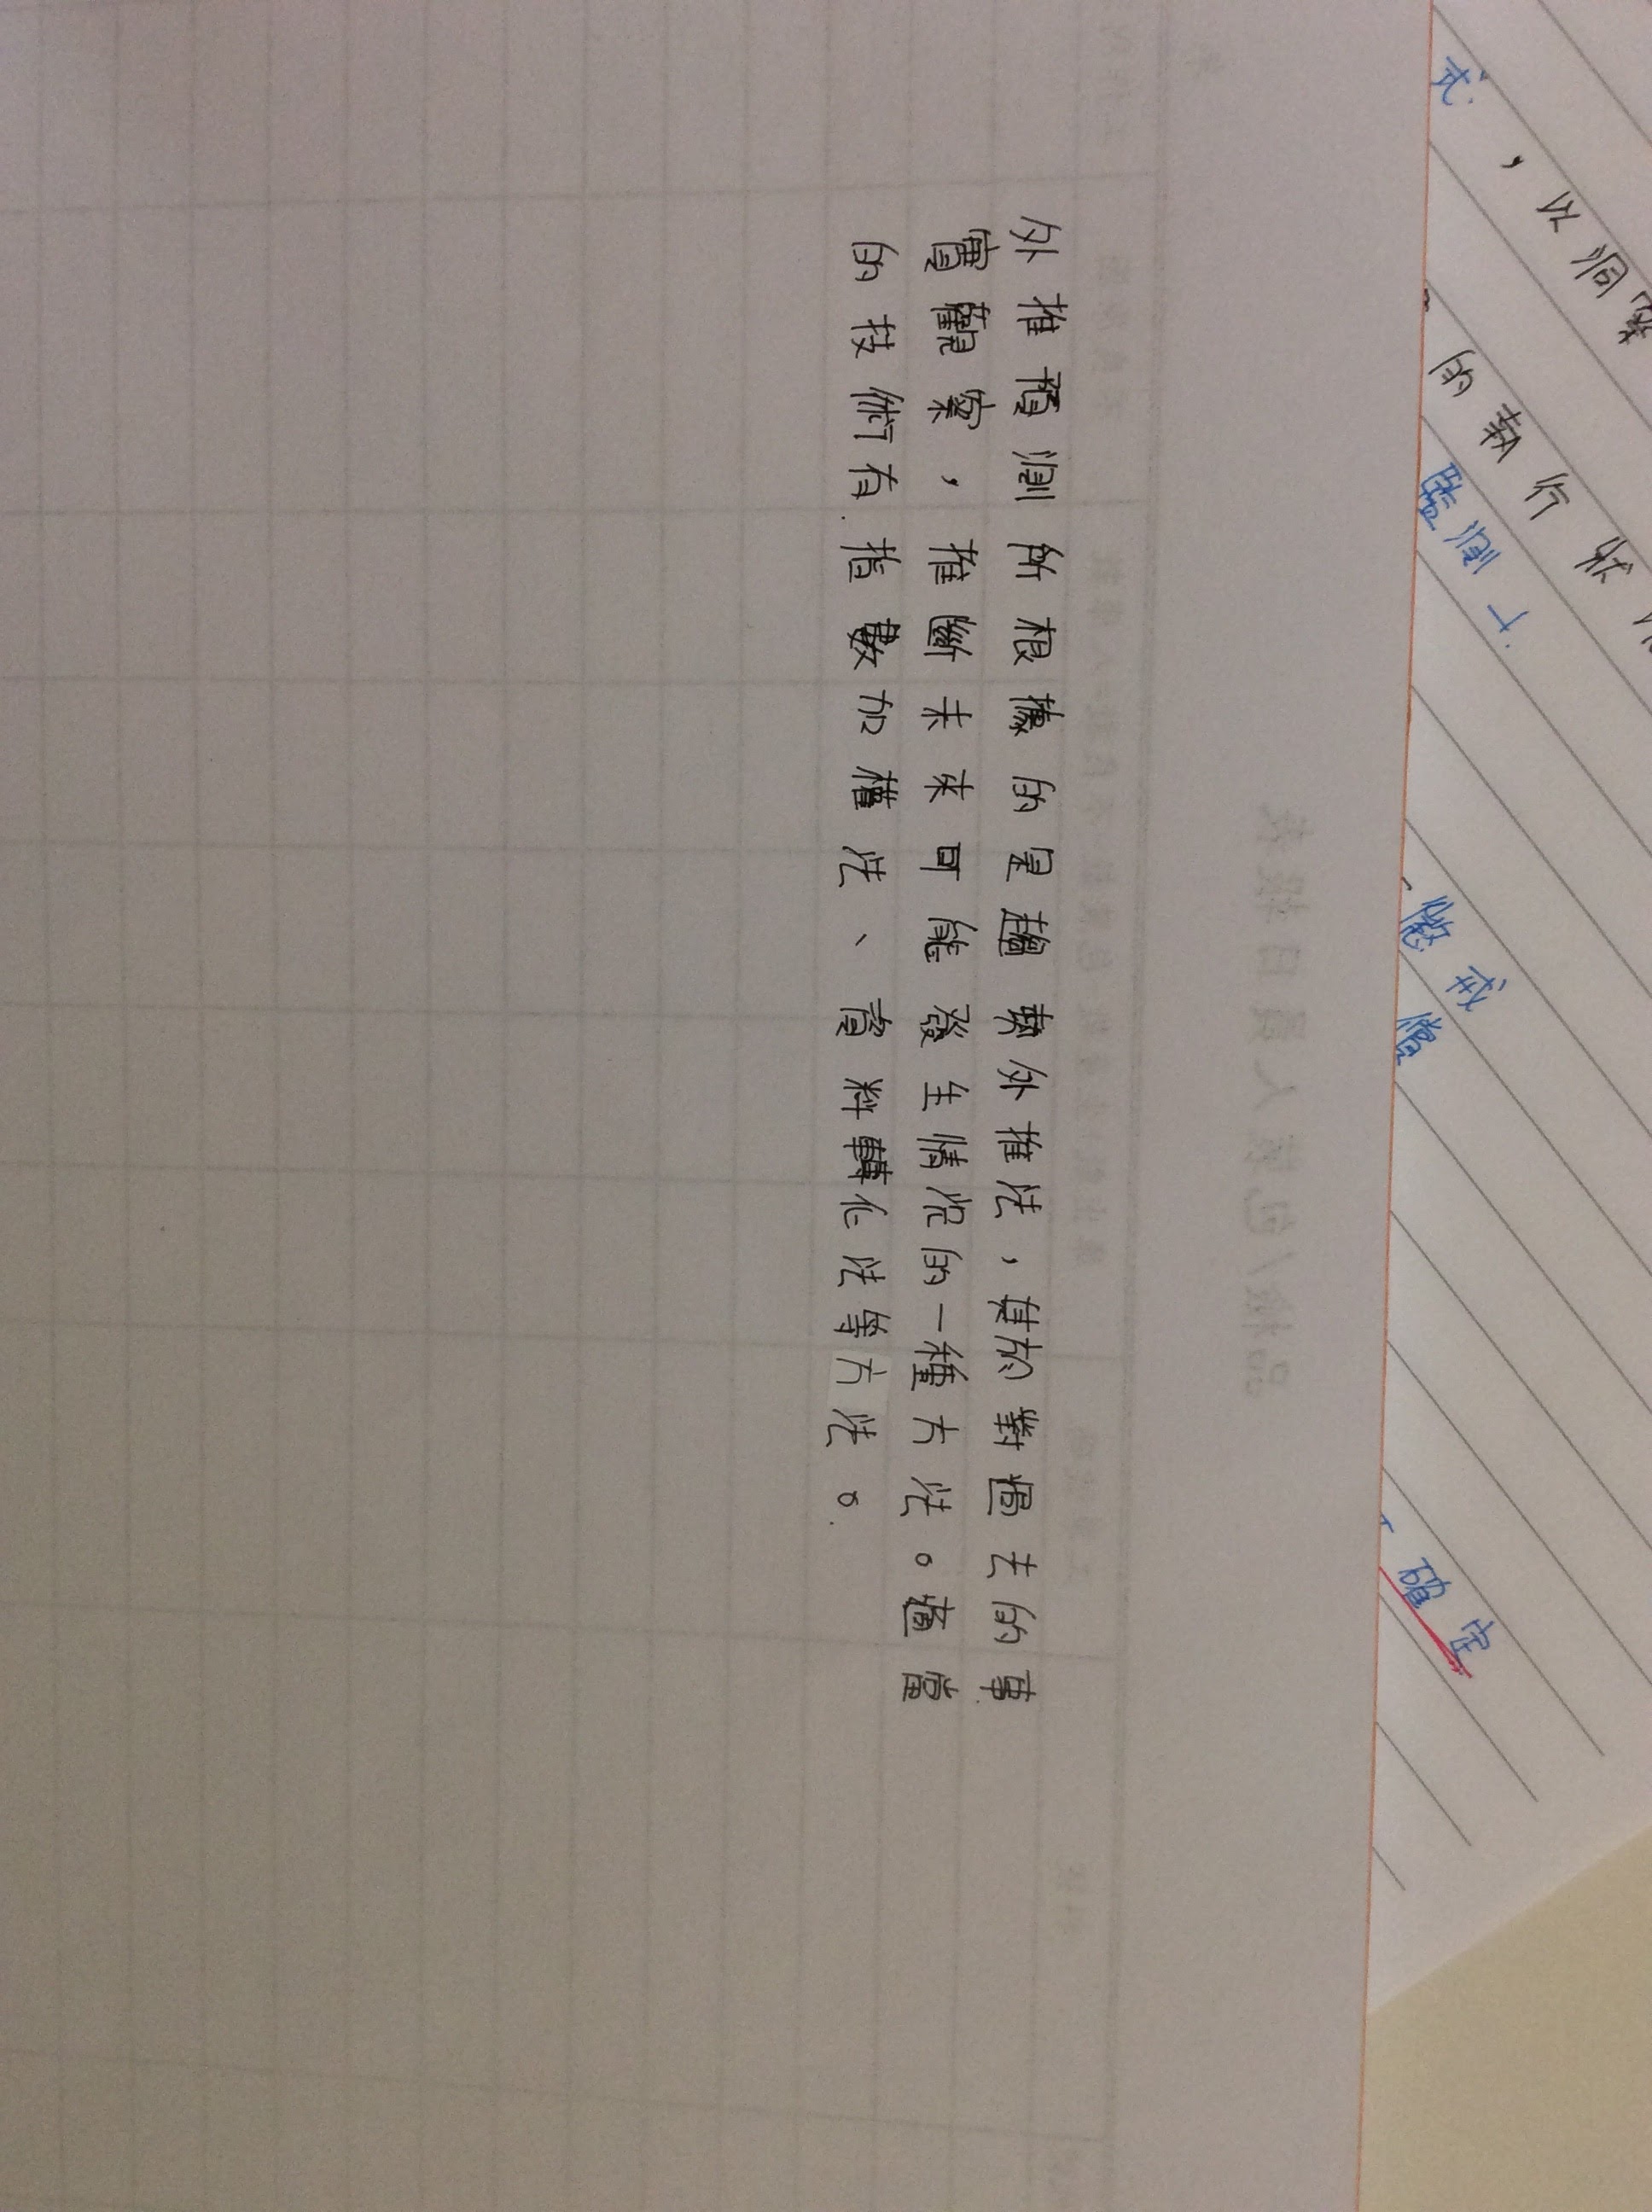 外推預測所根據的是趨勢外推法，基於對過去的事
實觀察，推斷未來可能發生情況的一種方法。適當
的技術有指數加權法、資料轉化法等方法。
式
，以洞察
的執行狀
監測
確定